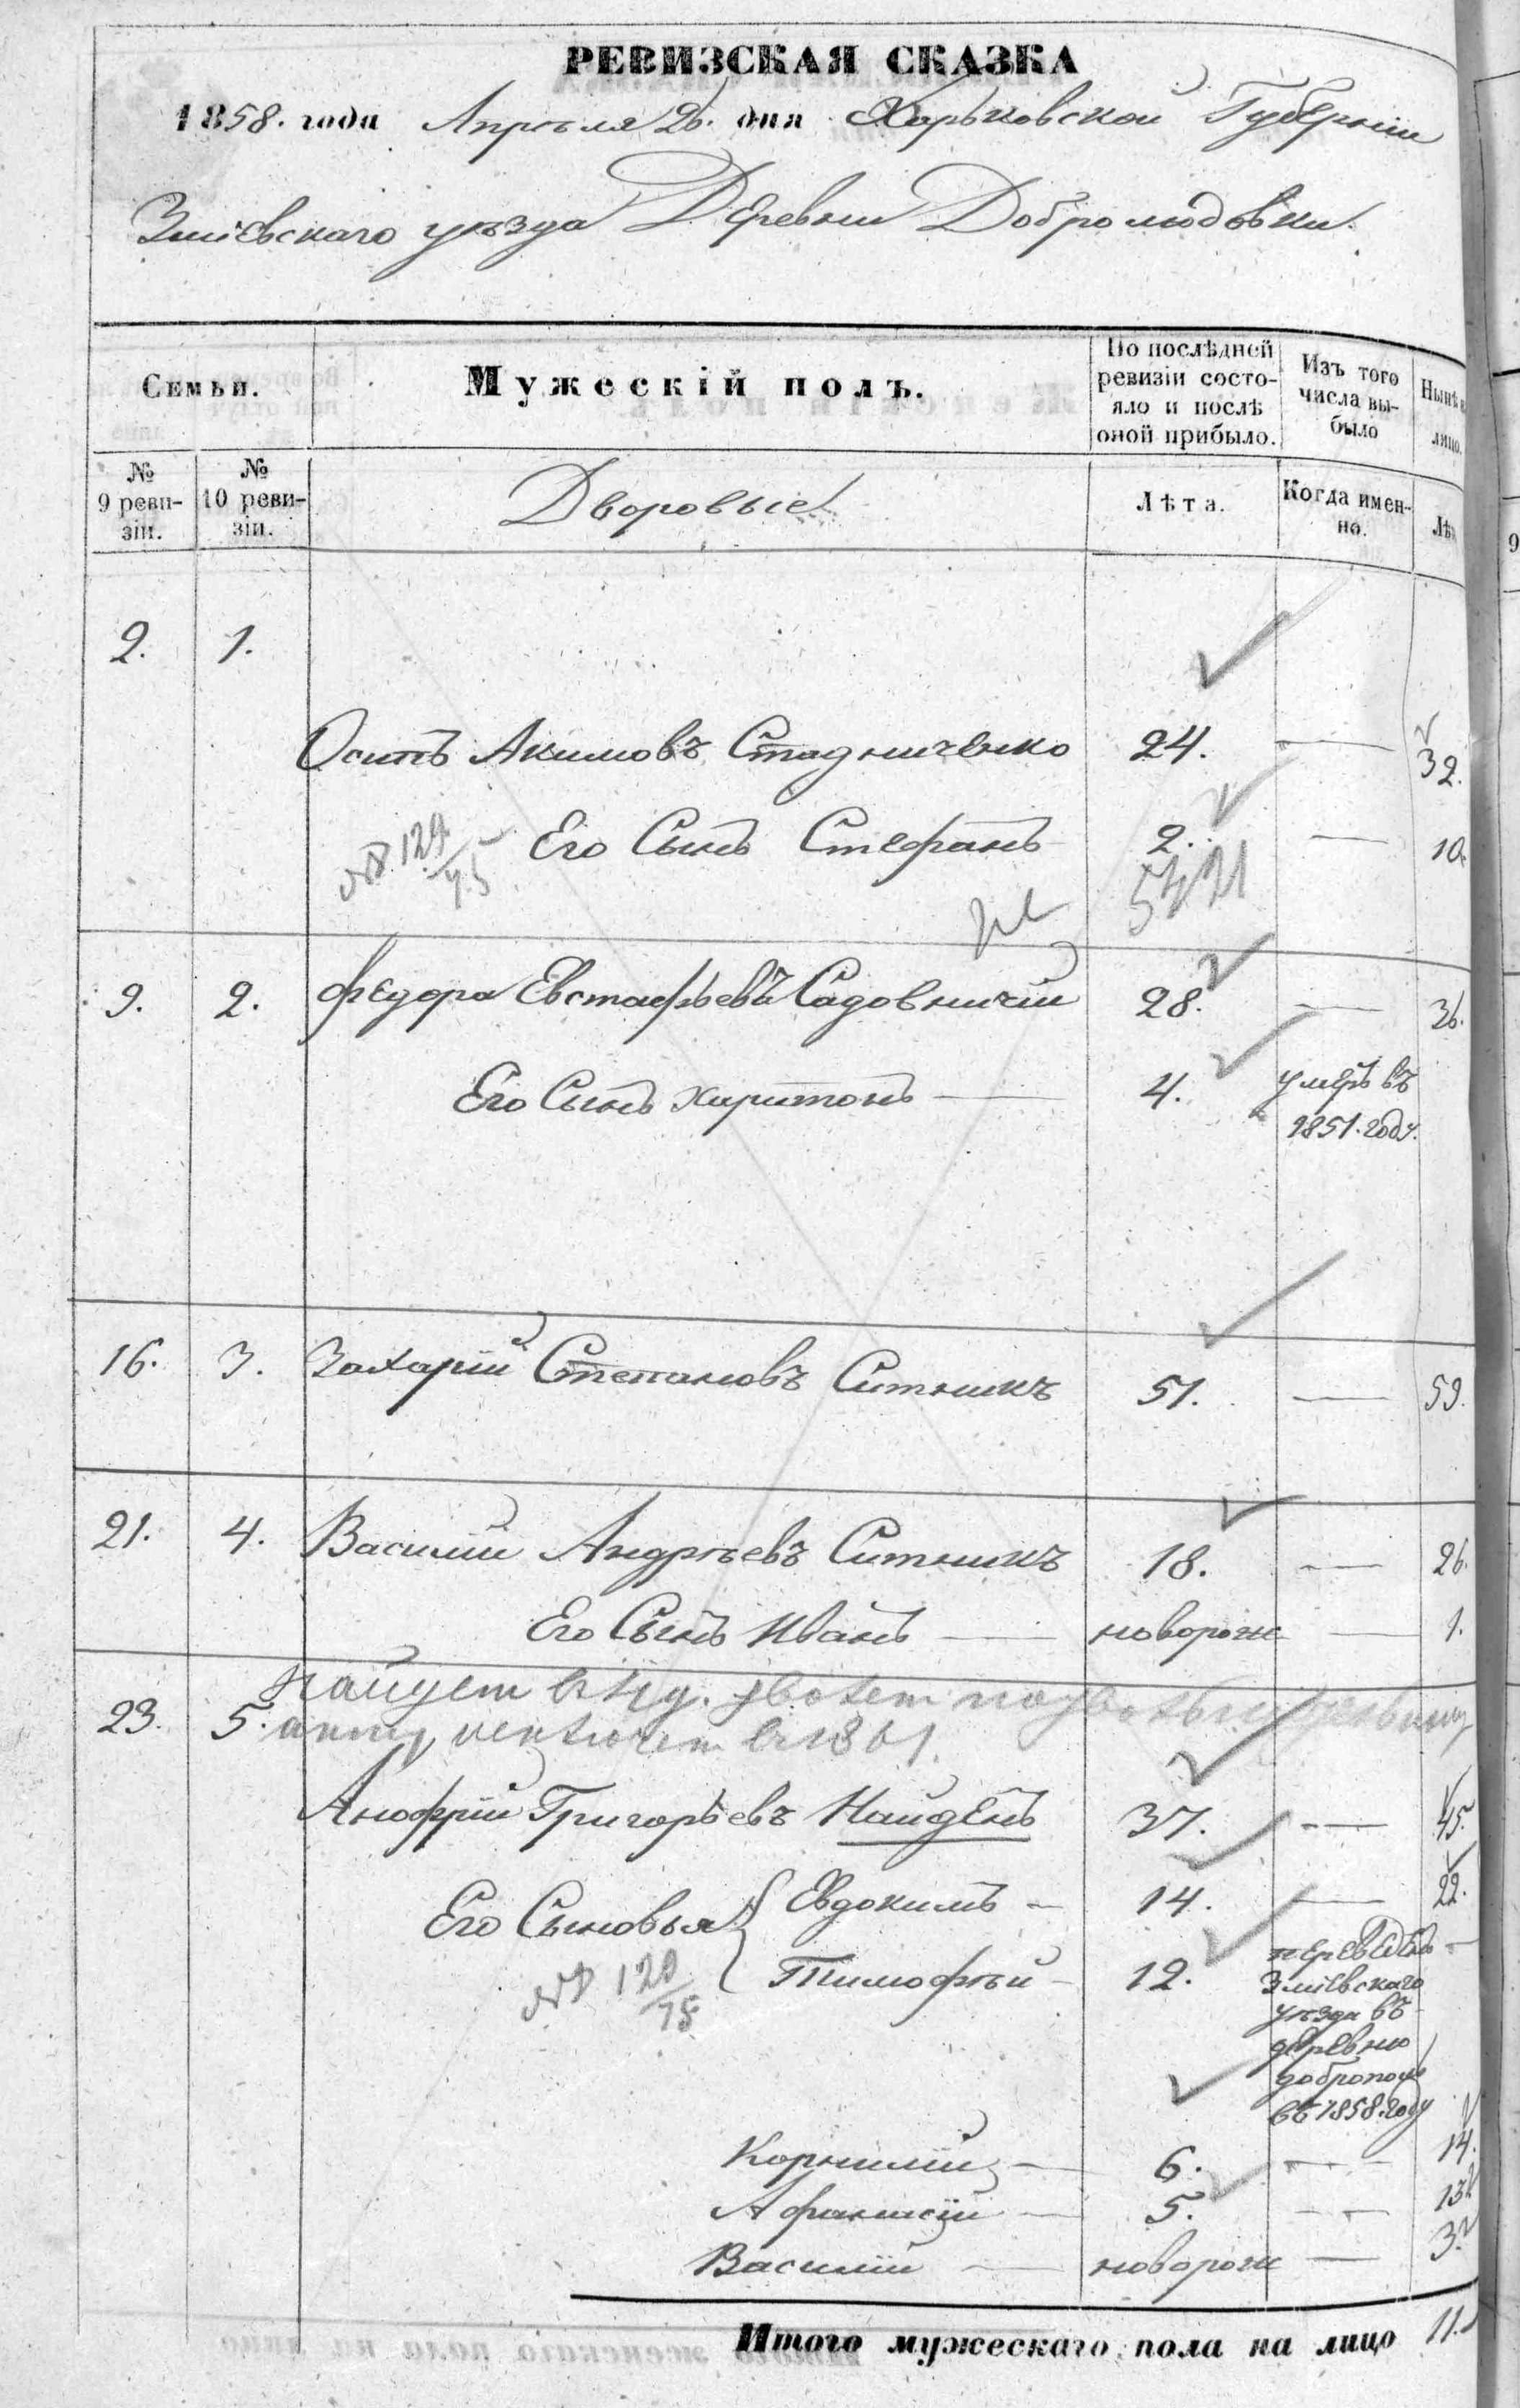 РЕВИЗСКАЯ СКАЗКА
1858. года Апрѣля 26. дня Харьковской Губерніи
Зміевскаго уѣзда Деревни Добролюдовки.
Семьи.
Мужескій полъ.
По послѣдней ревизіи состо-
яло и послѣ
оной прибыло.
Изъ того
числа вы-
было
Нынѣ на
лицо.
№
9 реви-
зіи.
№
10 реви-
зіи.
Дворовые
Лѣта.
Когда имен-
но.
Лѣ
2. 1.
Осипъ Акимовъ Стадниченко 24. — 32.
Его Сынъ Стефанъ 2. — 10.
9. 2. Федора Евстафьевъ Садовничій 28. — 36.
Его Сынъ Харитонъ — 4. умеръ въ
1851. году.
16. 3. Захарій Степановъ Ситникъ 51. — 59.
21. 4. Василій Андрѣевъ Ситникъ 18. — 26.
Его Сынъ Иванъ — новорож — 1.
23. 5.
Анофрій Григорьевъ Найденъ 37. — 45.
Его Сыновья { Евдокимъ — 14. — 22.
Тимофѣй — 12. переведенъ —
Зміевскаго
уѣзда въ
деревню
доброполье
въ 1858 году
Корнилій — 6. — 14.
Афанасій — 5. — 13.
Василій — новорож — 3.
Итого мужескаго пола на лицо 11.